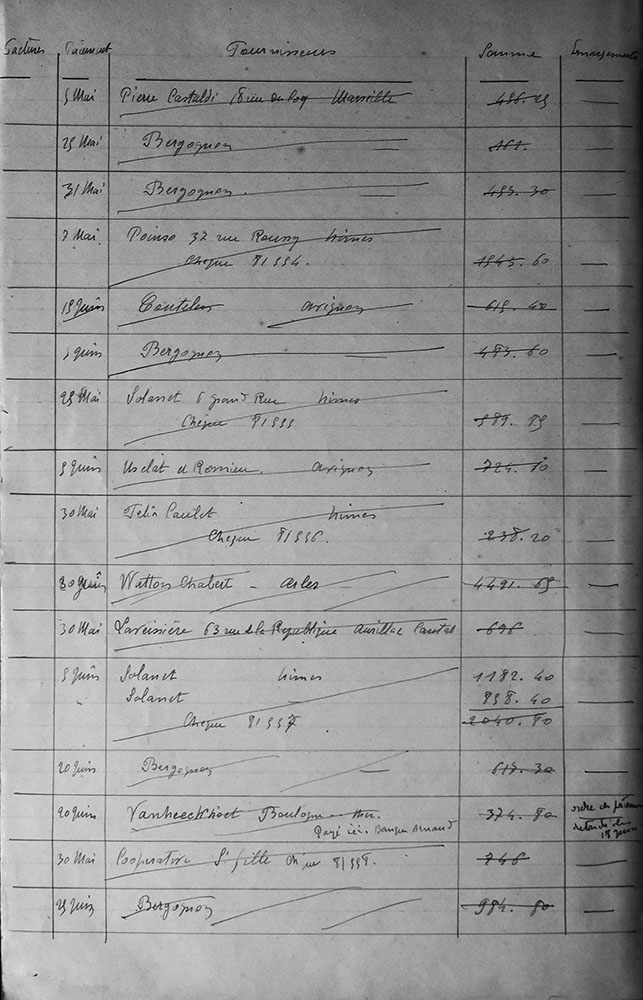 Factures Paiement Fournisseurs Somme Emargements
5 Mai Pierre Castaldi 18 rue du Coq Marseille 496.25
25 Mai Bergognon 161.
31 Mai Bergognon. 493.30
7 Mai Poinso 37 rue Roussy Nimes
Chèque 81554. 1545.60
15 Juin Coutelen Avignon 615.40
5 Juin Bergognon 483.60
25 Mai Solanet 6 grand Rue Nimes
Chèque 81555 589.85
5 Juin Usclat et Romieu. Avignon 724.10
30 Mai Felix Paulet Nimes
Cheque 81556. 238.20
20 Juin Wattons Chabert - Arles - 4491.65
30 Mai Laveissière 63 rue de la République Aurillac Cantal 696
5 Juin Solanet Nimes 1182.40
" Solanet 858.40
Cheque 81557 2040.80
20 Juin Bergognon 617.30
20 Juin Vanheeckhoet Boulogne mer. 374.80 ordre de
Payé Banque Arnaud 18 Juin
30 Mai Cooperative St Gille 81558. 746
25 Juin Bergognon 984.80